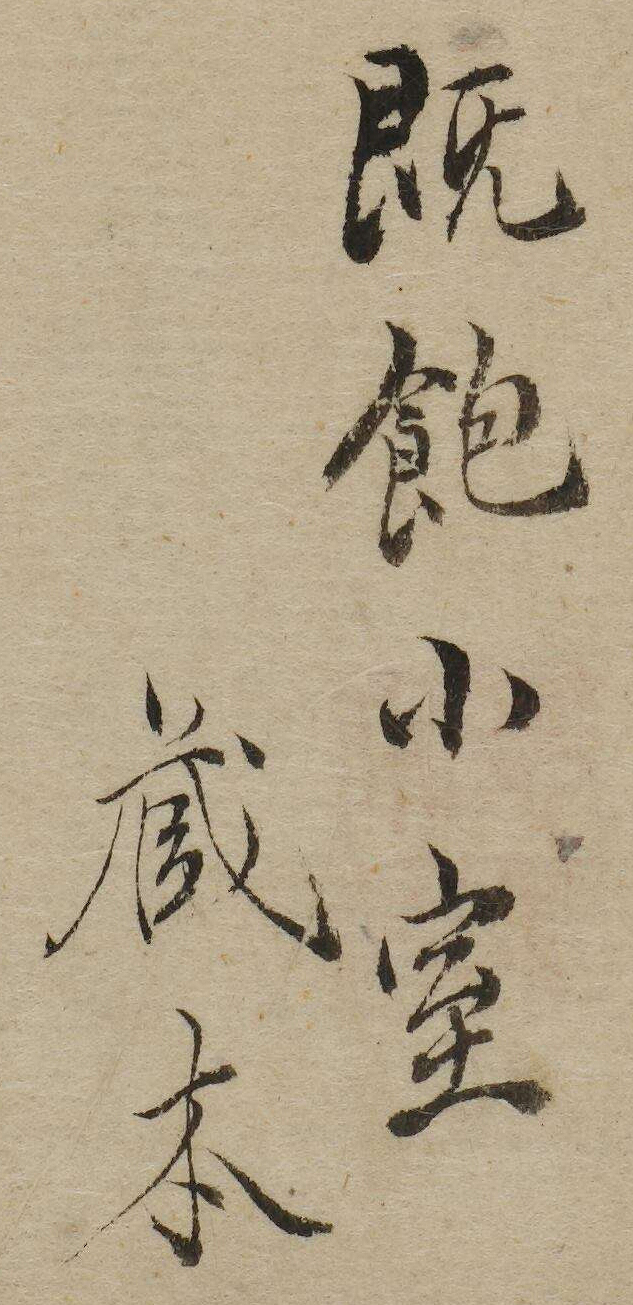 既飽小室
藏本